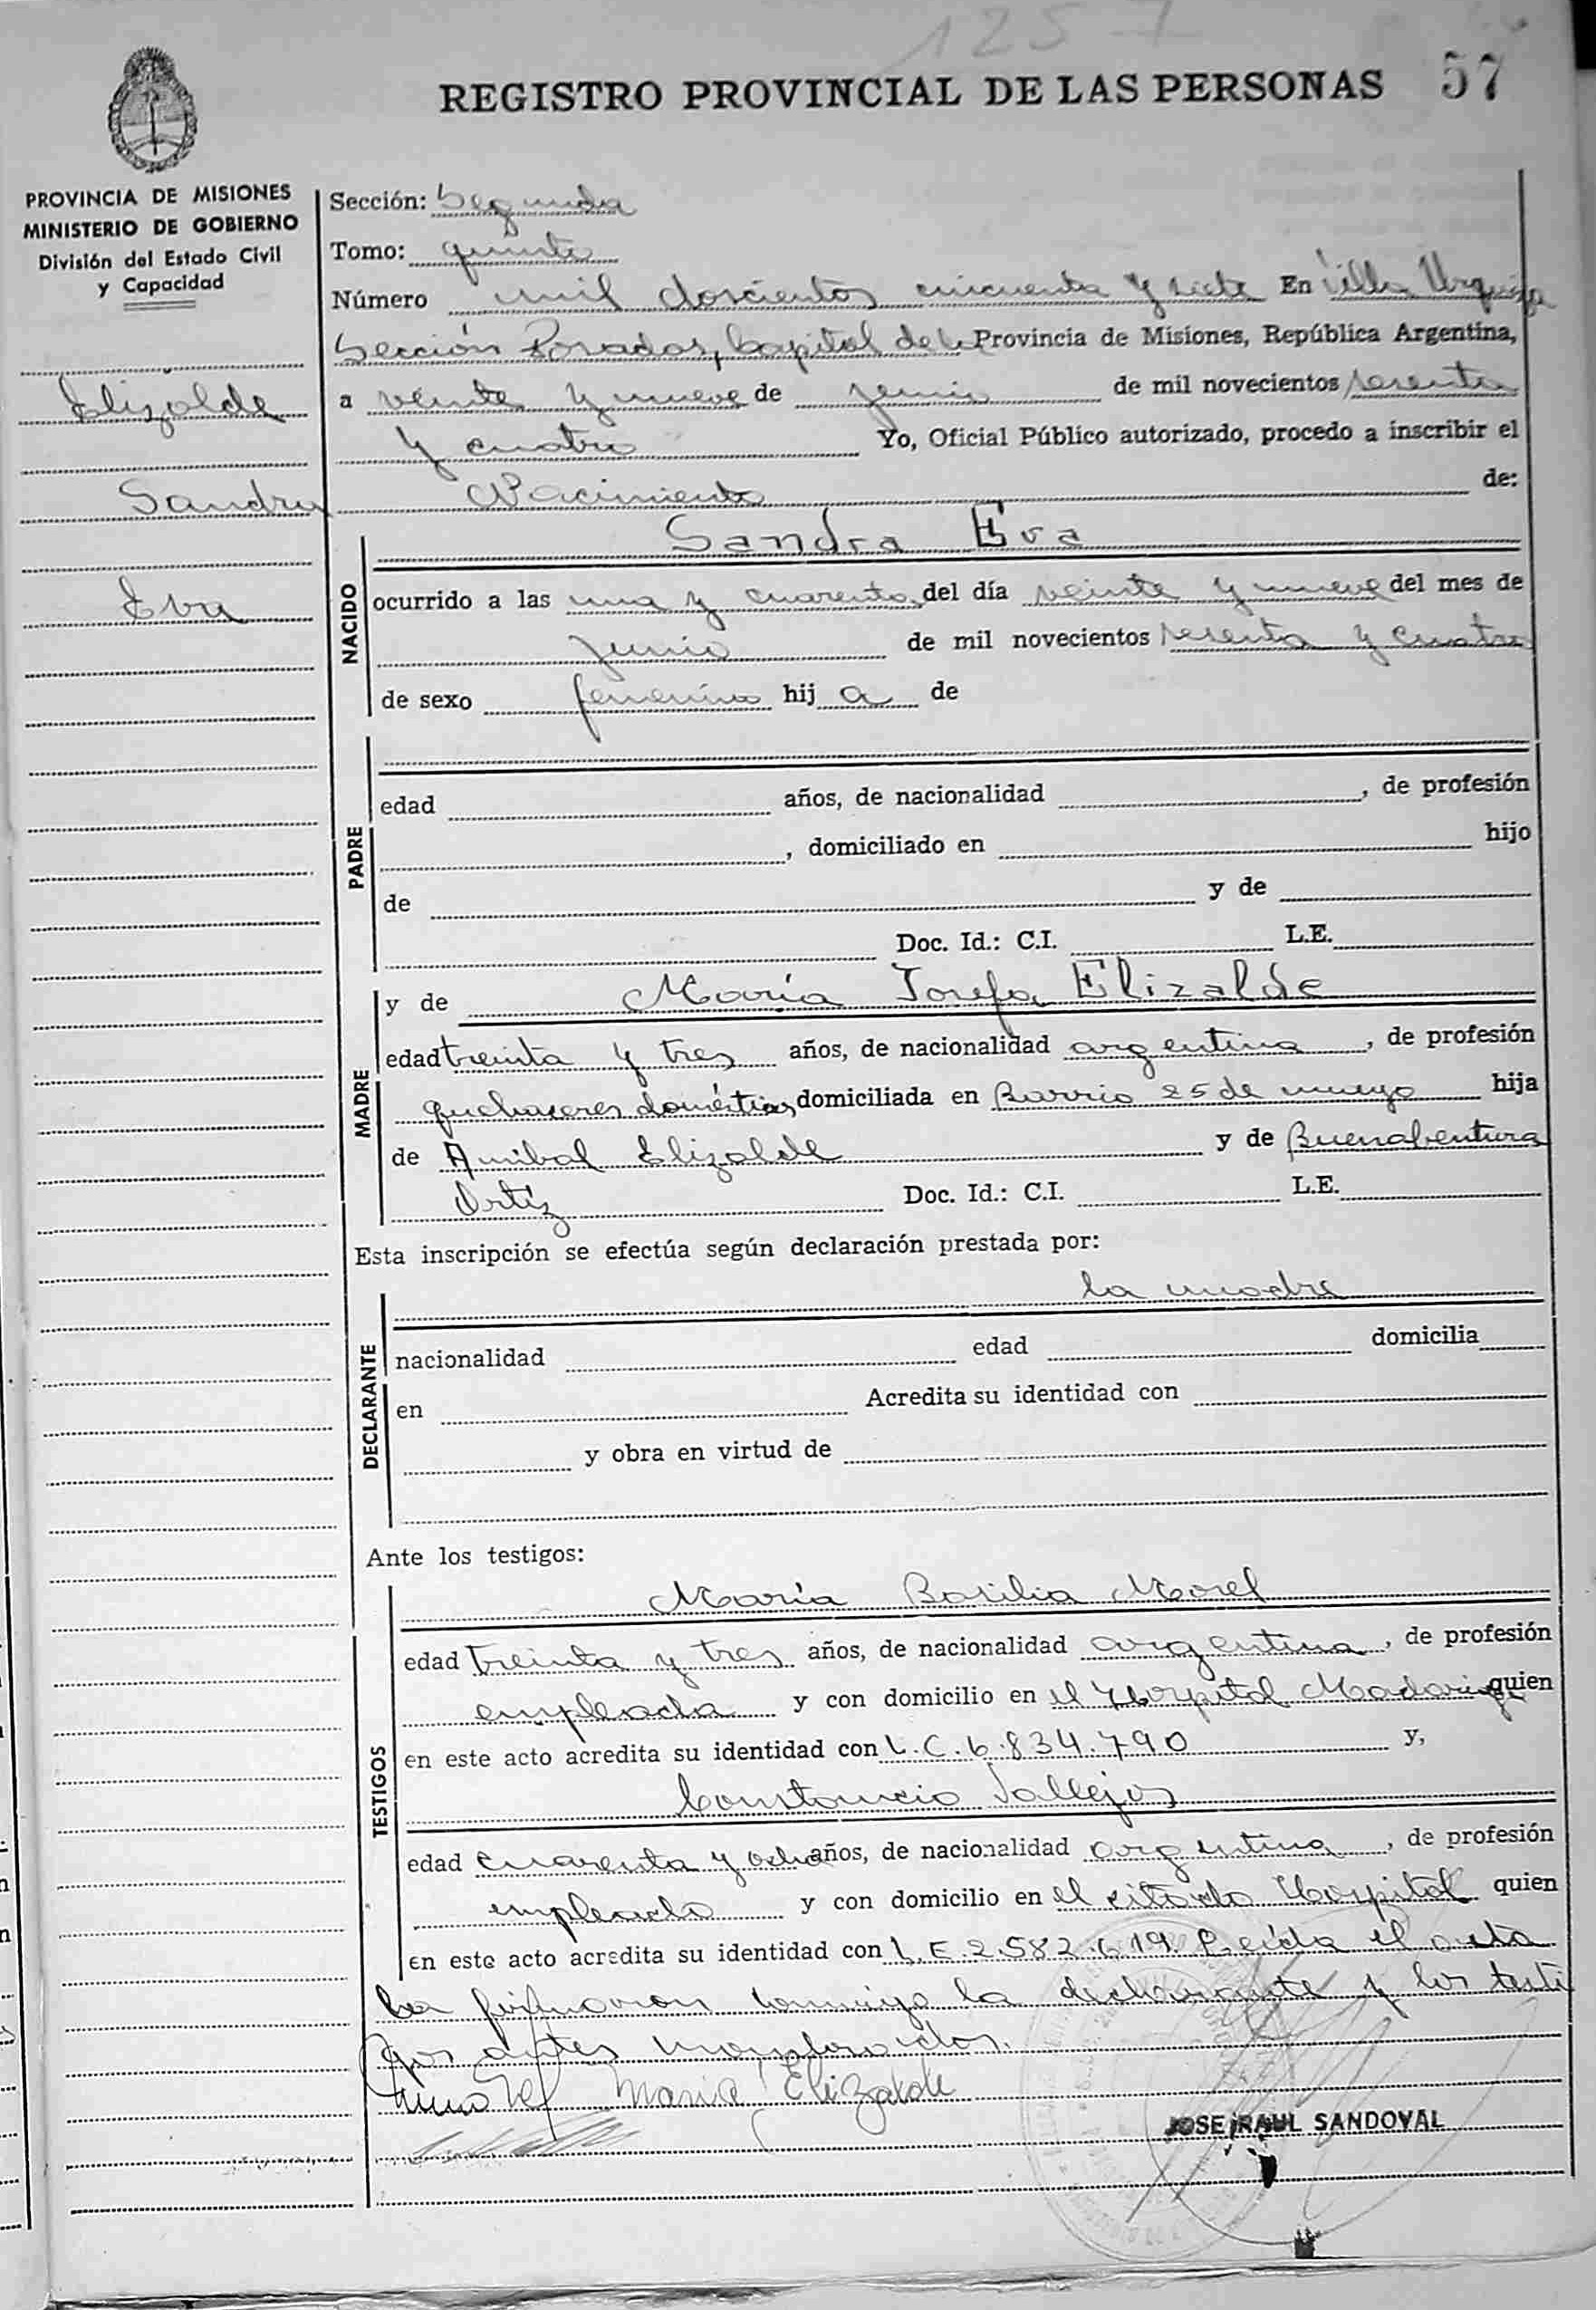 1257
REGISTRO PROVINCIAL DE LAS PERSONAS 57
PROVINCIA DE MISIONES
MINISTERIO DE GOBIERNO
División del Estado Civil
y Capacidad
Elizalde
Sandra
Eva
Sección: Segunda
Tomo: quinto
Número mil doscientos cincuenta y siete En Villa Urquiza
Sección Posadas, Capital de la Provincia de Misiones, República Argentina,
a veinte y nueve de junio de mil novecientos sesenta
y cuatro Yo, Oficial Público autorizado, procedo a inscribir el
Nacimiento de:
NACIDO
Sandra Eva
ocurrido a las una y cuarenta del día veinte y nueve del mes de
junio de mil novecientos sesenta y cuatro
de sexo femenino hij a de
PADRE
edad años, de nacionalidad , de profesión
, domiciliado en hijo
de y de
Doc. Id.: C.I. L.E.
MADRE
y de María Josefa Elizalde
edad treinta y tres años, de nacionalidad argentina , de profesión
quehaceres domésticos domiciliada en Barrio 25 de mayo hija
de Anibal Elizalde y de Buenabentura
Ortíz Doc. Id.: C.I. L.E.
Esta inscripción se efectúa según declaración prestada por:
DECLARANTE
la madre
nacionalidad edad domicilia
en Acredita su identidad con
y obra en virtud de
Ante los testigos:
TESTIGOS
María Basilia Morel
edad treinta y tres años, de nacionalidad argentina , de profesión
empleada y con domicilio en el Hospital Madariaga quien
en este acto acredita su identidad con L.C.6.834.790 y,
Constancio Vallejos
edad cuarenta y ocho años, de nacionalidad argentina , de profesión
empleado y con domicilio en el citado Hospital quien
en este acto acredita su identidad con L.E.2.582.619. Leída el acta
la firmaron conmigo la declarante y los testi
gos antes nombrados.
Maria Elizalde
JOSE RAUL SANDOVAL